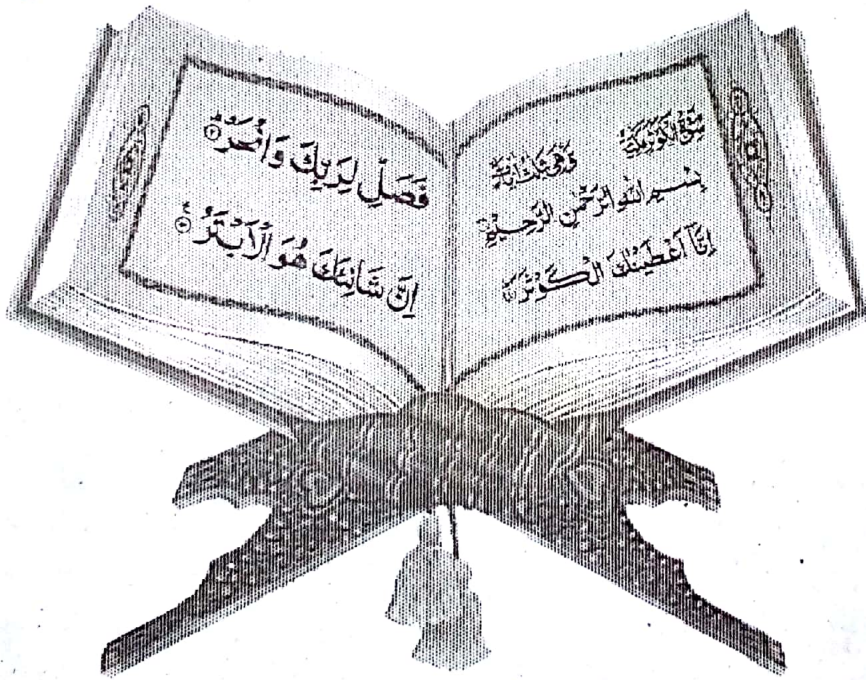 سورة الكوثر مكية وهي ثلث آيات
بِسْمِ اللهِ الرَّحْمٰنِ الرَّحِيْمِ
اِنَّاۤ اَعْطَيْنٰكَ الْكَوْثَرَ ﴿١﴾
فَصَلِّ لِرَبِّكَ وَانْحَرْ ﴿٢﴾
اِنَّ شَانِئَكَ هُوَ الْاَبْتَرُ ﴿٣﴾